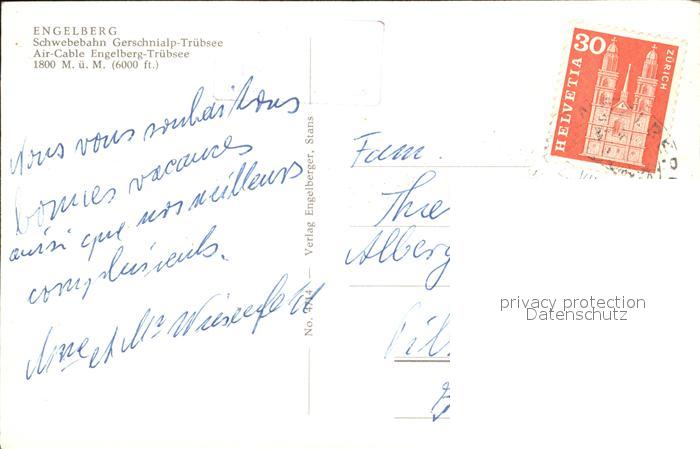 ENGELBERG
Schwebebahn Gerschnialp-Trübsee
Air-Cable Engelberg-Trübsee
1800 M. ü. M. (6000 ft.)
Nous vous souhaitons
bonnes vacances
ainsi que nos meilleurs
compliments.
Mme et Mr Wiesenfeld
No. 4714 — Verlag Engelberger, Stans
HELVETIA 30 ZÜRICH
Fam.
Alberg
privacy protection
Datenschutz